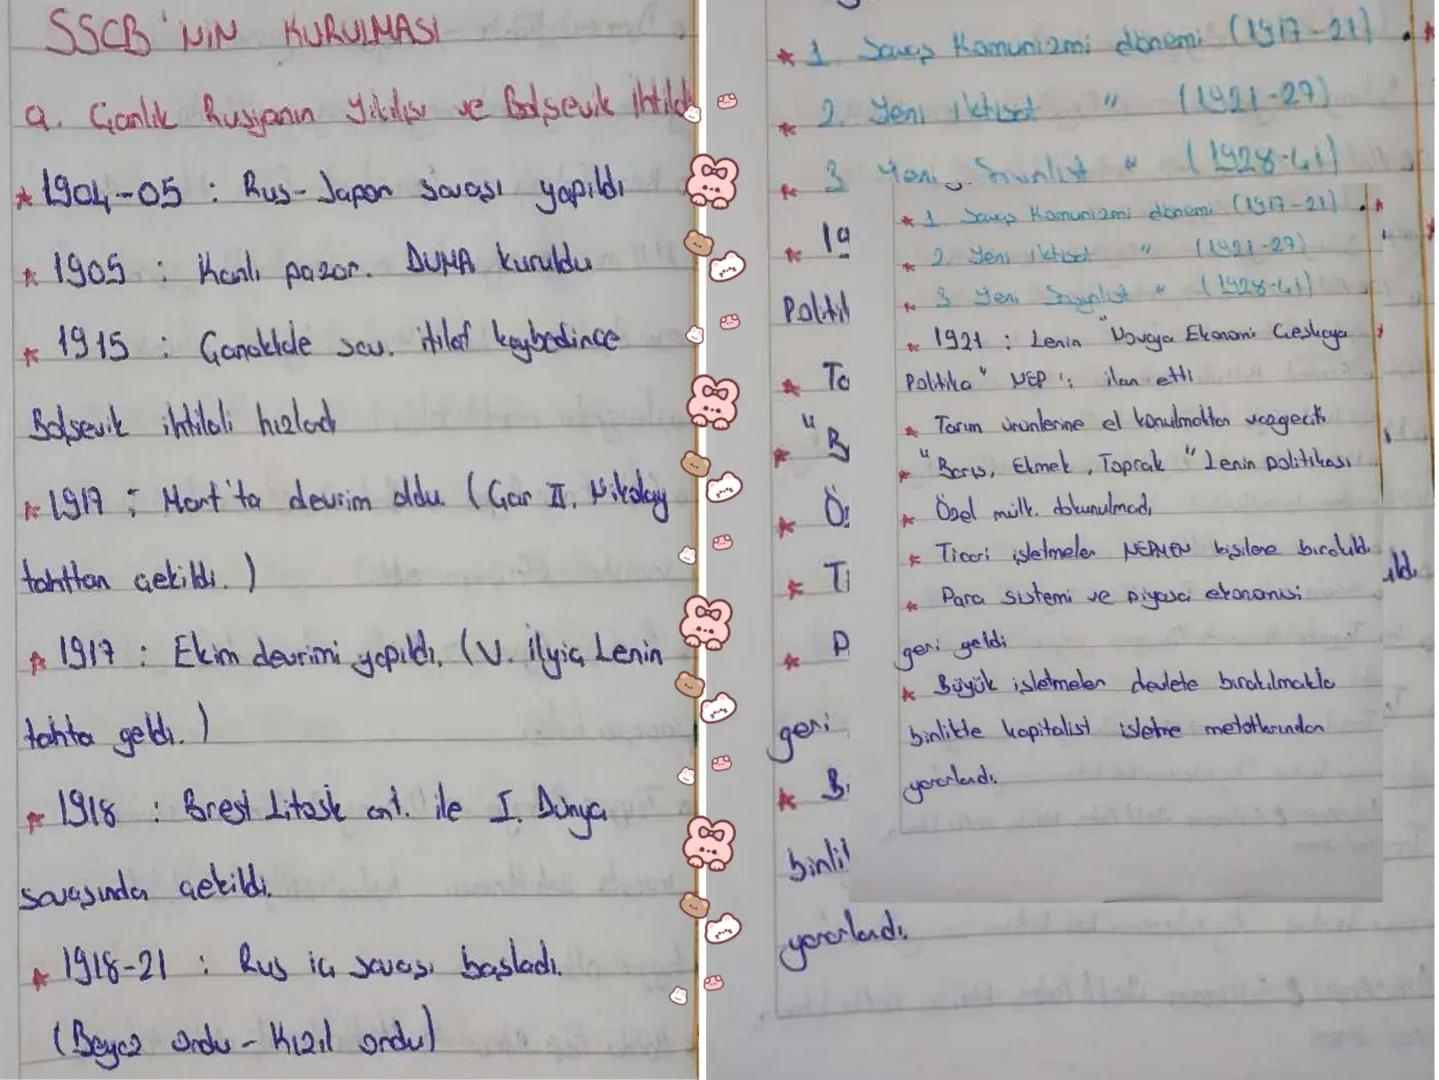 SSCB'NİN KURULMASI
a. Çarlık Rusyanın Yıkılışı ve Bolşevik İhtild
* 1904-05 : Rus-Japon savaşı yapıldı
* 1905 : Kanlı pazar. DUMA kuruldu
* 1915 : Çanakkale sav. itilaf kaybedince
Bolşevik ihtilali hızlandı
* 1917 : Mart'ta devrim oldu. (Çar II. Nikolay
tahttan çekildi.)
* 1917 : Ekim devrimi yapıldı. (V. İlyiç Lenin
tahta geldi.)
* 1918 : Brest Litosk ant. ile I. Dünya
savaşından çekildi.
* 1918-21 : Rus iç savaşı başladı.
(Beyaz ordu - Kızıl ordu)
* 1 Savaş Komunizmi dönemi (1917-21)
* 2. Yeni iktisat " (1921-27)
* 3 Yeni " (1928-41)
* 19
Politi
* Ta
* "B
* Öz
* Ti
* P
geri
* B
binli
yararlandı.
* 1 Savaş Komunizmi dönemi (1917-21)
* 2. Yeni iktisat " (1921-27)
* 3 Yeni Sosyalist " (1928-41)
* 1921 : Lenin "Novaya Ekonomi Çeskaya
Politika" NEP'i ilan etti
* Tarım ürünlerine el konulmaktan vazgeçildi
* "Barış, Ekmek, Toprak" Lenin politikası
* Özel mülk. dokunulmadı
* Ticari işletmeler NEPMEN kişilere bırakıldı
* Para sistemi ve piyasa ekonomisi
geri geldi
* Büyük işletmeler devlete bırakılmakla
birlikte kapitalist işletme metotlarından
yararlandı.